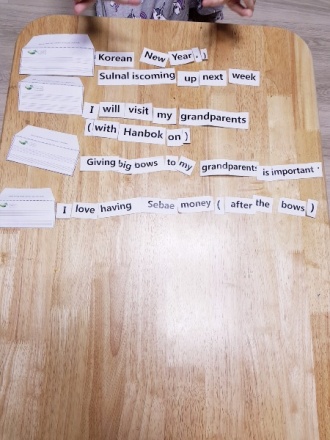 Korean New Year.
Sulnal is coming up next week
I will visit my grandparents
( with Hanbok on )
Giving big bows to my grandparents is important.
I love having Sebae money ( after the bows )